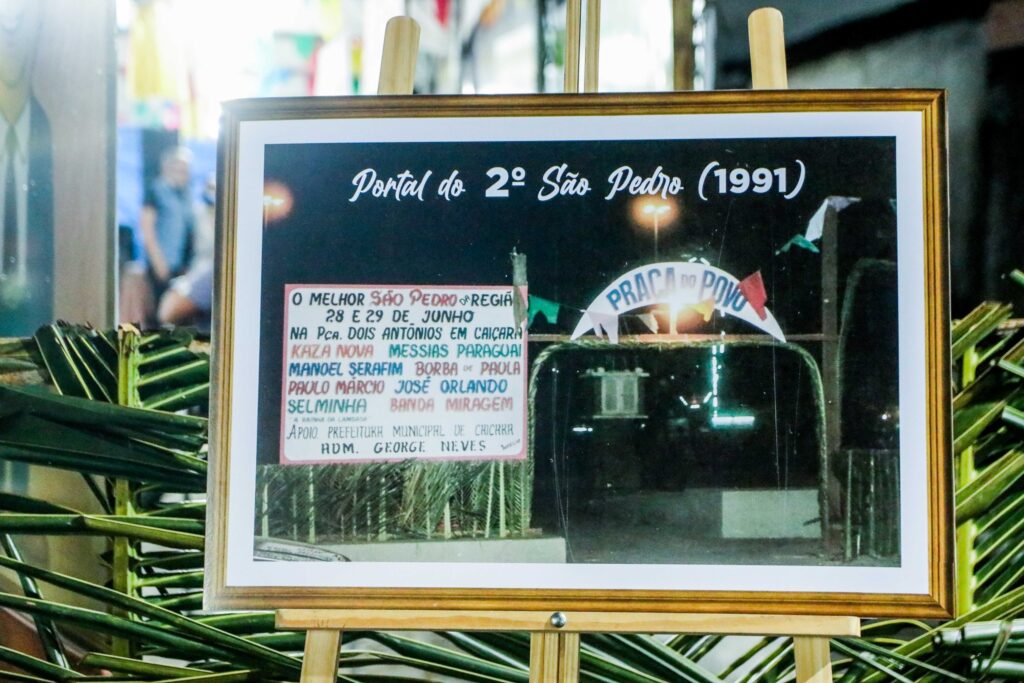 Portal do 2º São Pedro (1991)
PRAÇA DO POVO
O MELHOR SÃO PEDRO DA REGIÃ
28 E 29 DE JUNHO
NA Pça. DOIS ANTÔNIOS EM CAIÇARA
KAZA NOVA MESSIAS PARAGUAI
MANOEL SERAFIM BORBA DE PAULA
PAULO MÁRCIO JOSÉ ORLANDO
SELMINHA BANDA MIRAGEM
A RAINHA DA LAMBADA
APOIO PREFEITURA MUNICIPAL DE CAIÇARA
ADM. GEORGE NEVES